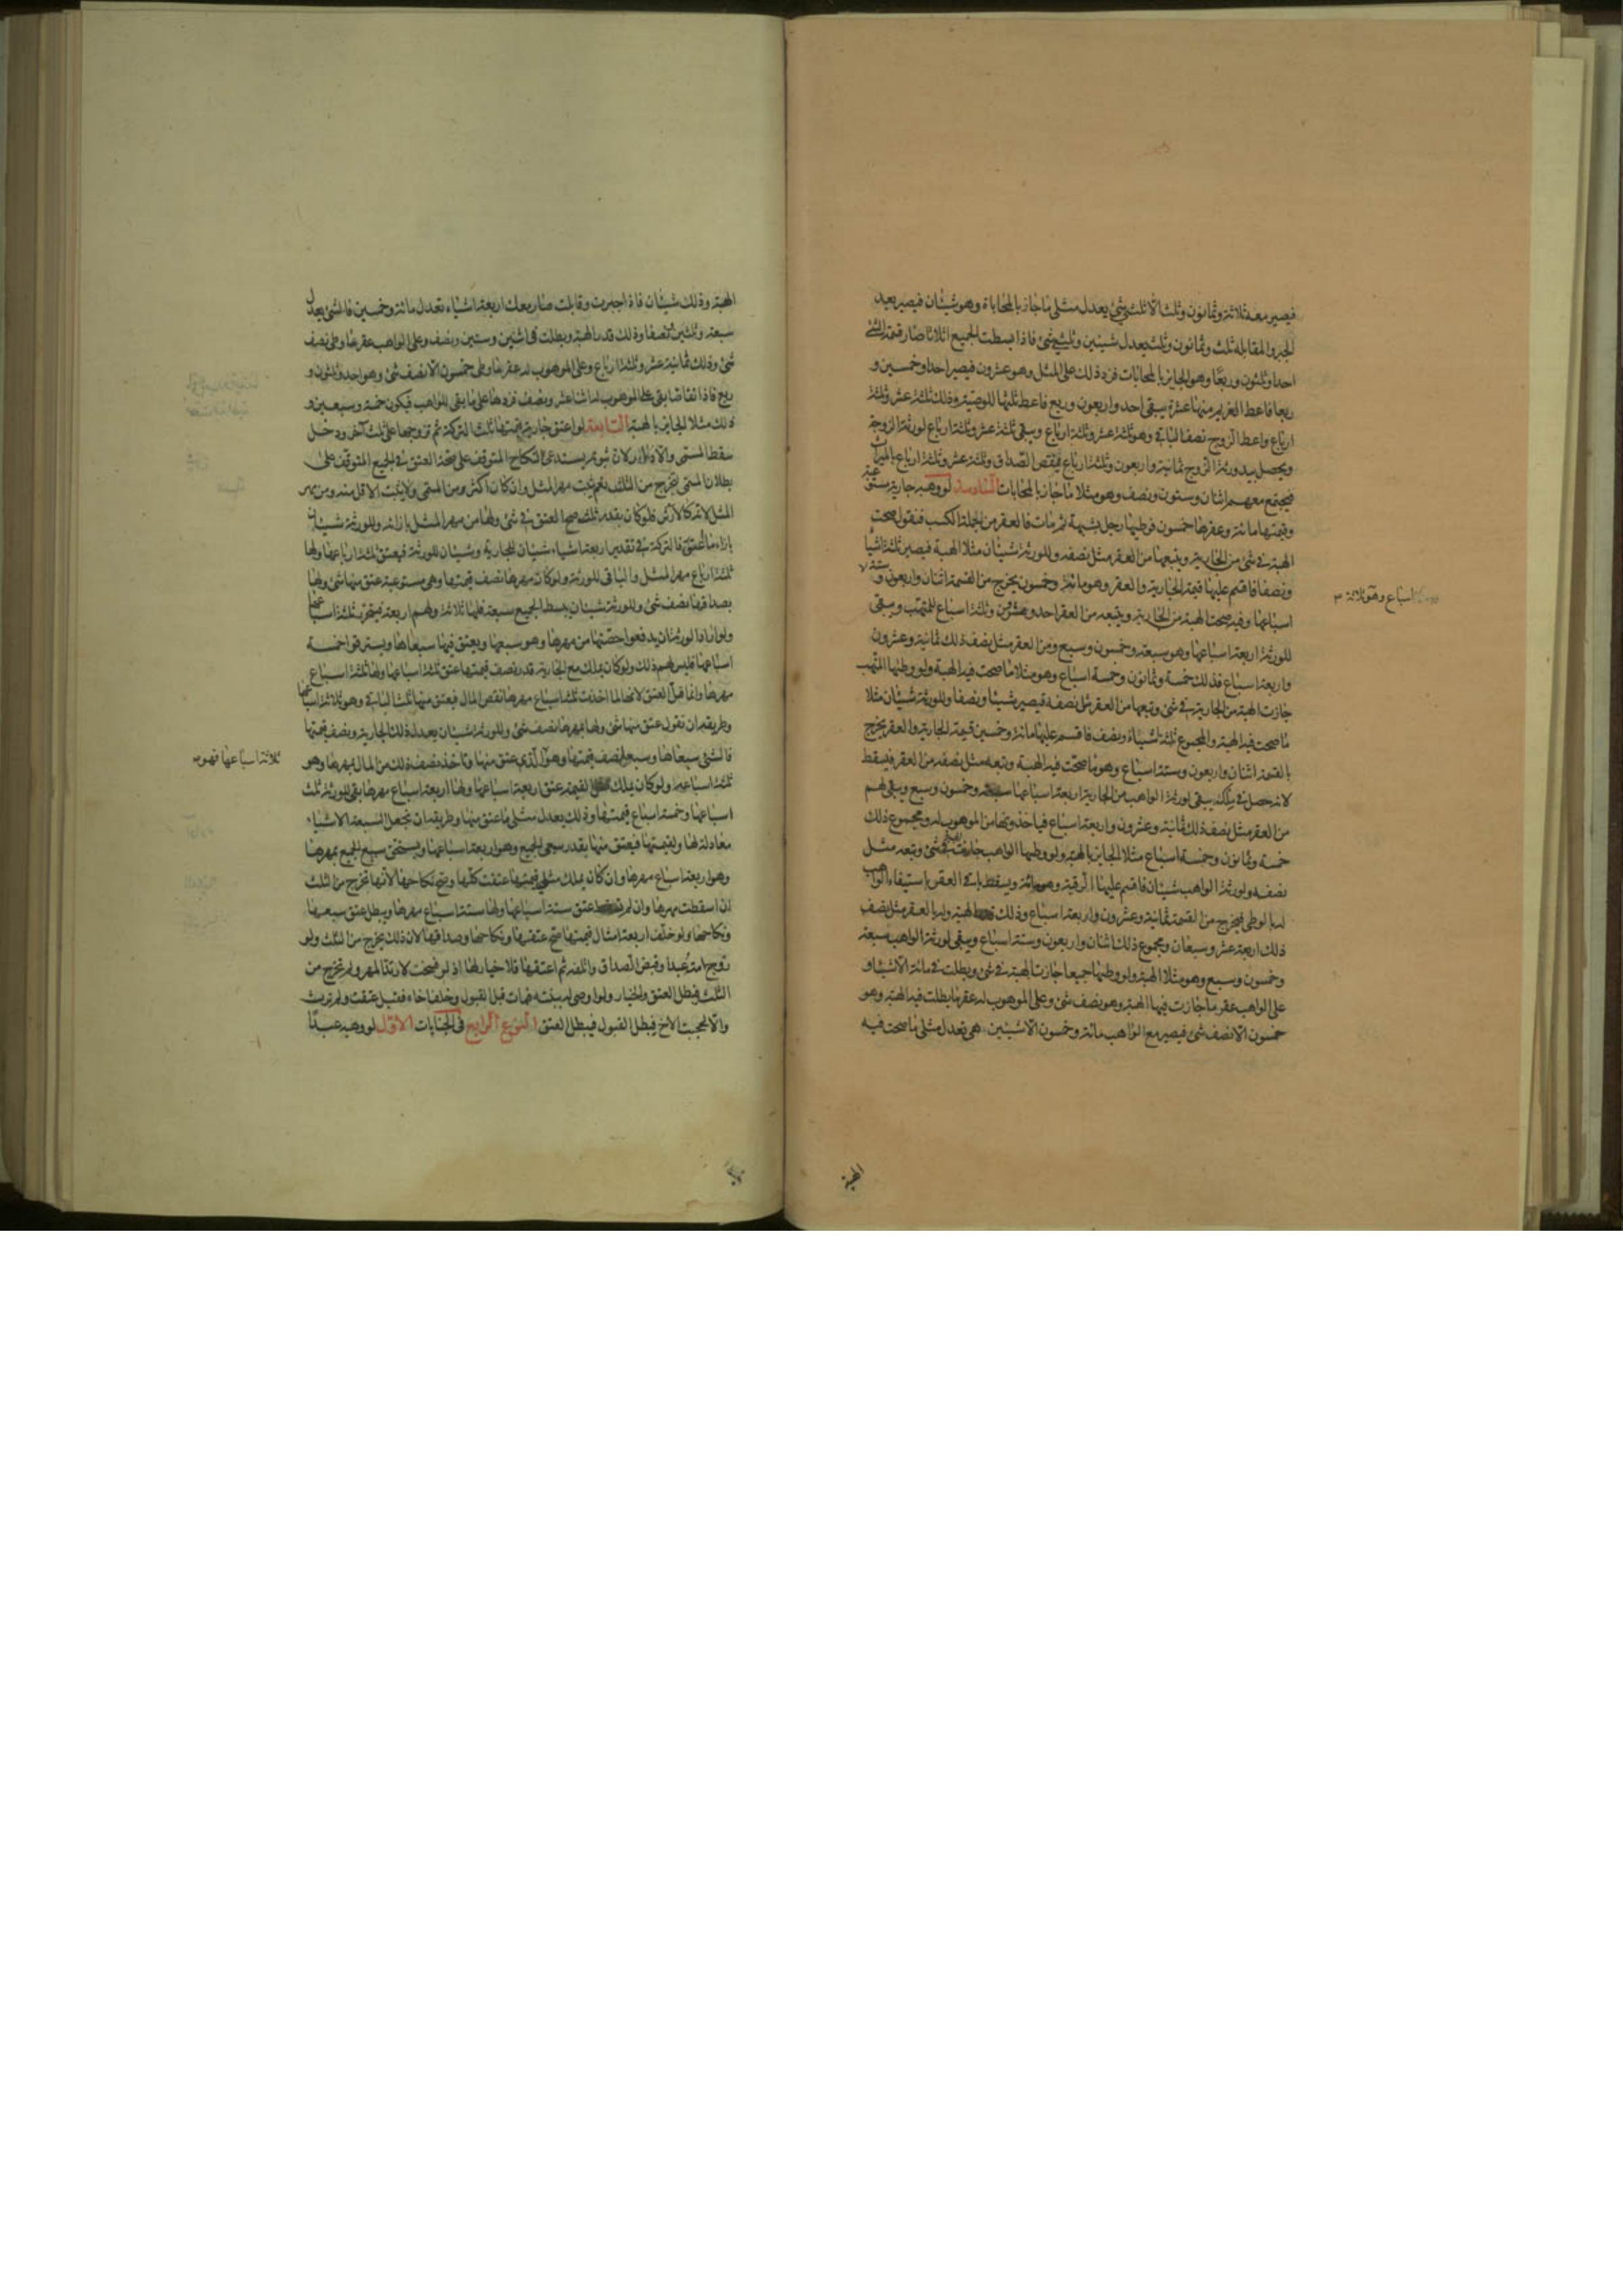 فيصير معه ثلاثة وثمانون وثلث الا ثلثي شئ يعدل مثلى ما جاز بالمحاباة وهو شيئان فيصير بعد
الجبر والمقابلة ثلث وثمانون وثلث يعدل شيئين وثلثي شئ فاذا بسطت الجميع اثلاثا صار قيمة الشئ
احدا وثلثون وربعا وهو الجايز بالمحابات فزد ذلك على المثل وهو عشرون فيصير احدا وخمسين و
ربعا فاعط الغريم منها عشرة يبقى احد واربعون وربع فاعط ثلثها للوصية وذلك ثلثة عشر وثلثة
ارباع واعط الزوج نصف الباقى وهو ثلثة عشر وثلثة ارباع ويبقى ثلثة عشر وثلثة ارباع لورثة الزوجة
ويحصل بيد ورثة الزوج ثمانية واربعون وثلثة ارباع بنقص الصداق وثلثة عشر وثلثة ارباع بالميراث
فيجتمع معهم اثنان وستون ونصف وهو مثلا ما جاز بالمحابات السادسة لو وهبه جارية مستوعبة
وقيمتها مائة وعقرها خمسون فوطيها رجل بشبهة ثم مات فالعقر من الجملة الكسب فنقول صحت
الهبة فى شئ من الجارية ويتبعها من العقر مثل نصفه وللورثة شيئان مثلا الهبة فيصير ثلثة اشيا
ونصفا فاقسم عليها قيمة الجارية والعقر وهو مائة وخمسون يخرج من القسمة اثنان واربعون وستة
اسباعها وفيه صحت الهبة من الجارية ويتبعه من العقر احد وعشرون وثلثة اسباع للمتهب ويبقى
للورثة اربعة اسباعها وهو سبعة وخمسون وسبع ومن العقر مثل نصف ذلك ثمانية وعشرون
واربعة اسباع فذلك خمسة وثمانون وخمسة اسباع وهو مثلا ما صحت فيه الهبة ولو وطيها المتهب
جازت الهبة من الجارية فى شئ وتبعها من العقر مثل نصفه فيصير شيئا ونصفا وللورثة شيئان مثلا
ما صحت فيه الهبة والمجموع ثلثة اشياء ونصف فاقسم عليها مائة وخمسين قيمة الجارية والعقر يخرج
بالقسمة اثنان واربعون وستة اسباع وهو ما صحت فيه الهبة وتبعه مثل نصفه من العقر فيسقط
لانه حصل فى ملكه يبقى لورثة الواهب من الجارية اربعة اسباعها سبعة وخمسون وسبع ويبقى لهم
من العقر مثل نصف ذلك ثمانية وعشرون واربعة اسباع فياخذونها من الموهوب له ومجموع ذلك
خمسة وثمانون وخمسة اسباع مثلا الجايز بالهبة ولو وطيها الواهب جازت الهبة فى شئ وتبعه مثل
نصفه ولورثة الواهب شيئان فاقسم عليها الرقبة وهو مائة ويسقط باقى العقر باستيفاء الواهب
له بالوطى فيخرج من القسمة ثمانية وعشرون واربعة اسباع وذلك الهبة وله بالعقر مثل نصف
ذلك اربعة عشر وسبعان ومجموع ذلك اثنان واربعون وستة اسباع ويبقى لورثة الواهب سبعة
وخمسون وسبع وهو مثلا الهبة ولو وطيها جميعا جازت الهبة فى شئ وبطلت فى مائة الا شيئا و
على الواهب عقر ما جازت فيها الهبة وهو نصف شئ وعلى الموهوب له عقر ما بطلت فيه الهبة وهو
خمسون الا نصف شئ فيصير مع الواهب مائة وخمسون الا شيئين هى تعدل مثلى ما صحت فيه
اسباع وهو ثلاثة
الهبة
الهبة وذلك شيئان فاذا اجبرت وقابلت صار معك اربعة اشياء تعدل مائة وخمسين فالشئ يعدل
سبعة وثلثين ونصفا وذلك قدر الهبة وبطلت فى اثنين وستين ونصف وعلى الواهب عقر ما وطى نصف
شئ وذلك ثمانية عشر وثلثة ارباع وعلى الموهوب له عقر ما وطى خمسون الا نصف شئ وهو احد وثلثون و
ربع فاذا تقاصا بقى على الموهوب له اثنا عشر ونصف فزدها على ما بقى للواهب فيكون خمسة وسبعين و
ذلك مثلا الجايز بالهبة السابعة لو اعتق جارية قيمتها ثلث التركة ثم تزوجها على ثلث آخر ودخل
سقط المسمى والا دار لان ثبوته يستدعى النكاح المتوقف على صحة العتق فى الجميع المتوقف على
بطلان المسمى لتخرج من الثلث نعم يثبت مهر المثل وان كان اكثر من المسمى ولا يثبت الاقل منه ومن مهر
المثل لانه كالارش فلو كان بقدر ثلث صح العتق فى شئ ولها من مهر المثل بازائه وللورثة شيئان
بازاء ما عتق فالتركة فى تقدير اربعة اشياء شيئان للجارية وشيئان للورثة فيعتق ثلثة ارباعها ولها
ثلثة ارباع مهر المثل والباقى للورثة ولو كان مهرها نصف قيمتها وهى مستوعبة عتق منها شئ ولها
بصداقها نصف شئ وللورثة شيئان يبسط الجميع سبعة فلها ثلاثة ولهم اربعة فينحرر ثلثة اسباعها
ولو اراد الورثة ان يدفعوا حصتها من مهرها وهو سبعها ويعتق فيها سبعاها ويسترقوا خمسة
اسباعها فليس لهم ذلك ولو كان يملك مع الجارية قدر نصف قيمتها عتق ثلثة اسباعها ولها ثلثة اسباع
مهرها وانما قل العتق لانها لما اخذت ثلثة اسباع مهرها نقص المال فيعتق منها ثلث الباقى وهو ثلاثة اسباعها
وطريقه ان نقول عتق منها شئ ولها بمهرها نصف شئ وللورثة شيئان يعدل ذلك الجارية ونصف قيمتها
فالشئ سبعاها وسبعا نصف قيمتها وهو الذى عتق منها وتاخذ نصف ذلك من المال بمهرها وهو
ثلثة اسباعه ولو كان يملك لقيمته عتق اربعة اسباعها ولها اربعة اسباع مهرها بقى للورثة ثلث
اسباعها وخمسة اسباع قيمتها وذلك يعدل مثلى ما عتق منها وطريقه ان تجعل السبعة الاشياء
معادلة لها ولقيمتها فيعتق منها بقدر سبعى الجميع وهو اربعة اسباعها ويستحق سبع الجميع بمهرها
وهو اربعة اسباع مهرها وان كان يملك مثلى قيمتها عتقت كلها وصح نكاحها لانها تخرج من الثلث
ان اسقطت مهرها وان لم عتق ستة اسباعها ولها ستة اسباع مهرها ويبطل عتق سبعها
ونكاحها ولو خلف اربعة امثال قيمتها صح عتقها ونكاحها وصداقها لان ذلك يخرج من الثلث ولو
تزوج امته عبدا وقبض الصداق واتلفه ثم اعتقها فلا خيار لها اذ لو فسخت لارتد المهر ولم تخرج من
الثلث فبطل العتق والخيار ولو اوصى له ببنته فمات قبل القبول وخلف اخاه فقبل عتقت ولم ترث
والا لحجبت الاخ فبطل القبول فيبطل العتق النوع الرابع فى الجنايات الاول لو وهبه عبدا
ثلاثة اسباعها فهو